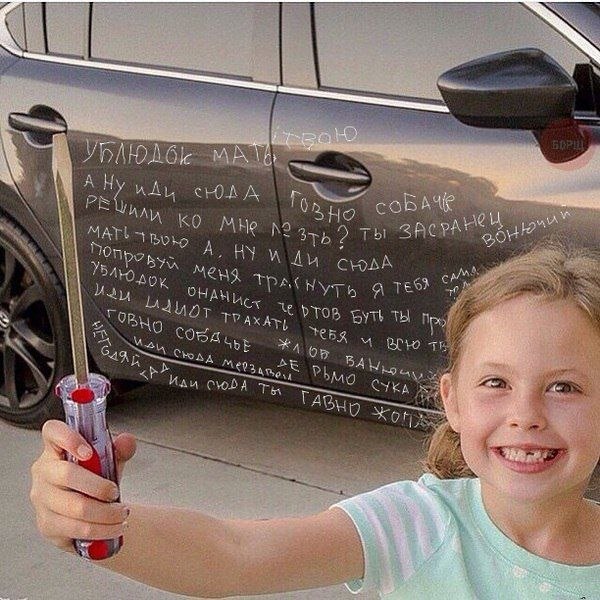 БОРЩ
УБЛЮДОК МАТЬ ТВОЮ
А НУ ИДИ СЮДА ГОВНО СОБАЧЕ
РЕШИЛИ КО МНЕ ЛЕЗТЬ? ТЫ ЗАСРАНЕЦ ВОНЮЧИЙ
МАТЬ ТВОЮ А. НУ ИДИ СЮДА
ПОПРОБУЙ МЕНЯ ТРАХНУТЬ Я ТЕБЯ САМА
УБЛЮДОК ОНАНИСТ ЧЕРТОВ БУТЬ ТЫ ПРО
ИДИ ИДИОТ ТРАХАТЬ ТЕБЯ И ВСЮ ТВ
ГОВНО СОБАЧЬЕ ЖЛОБ ВАНЮЧИЙ
ИДИ СЮДА МЕРЗАВЕЦ ДЕРЬМО СУКА
НЕГОДЯЙ ГАД ИДИ СЮДА ТЫ ГАВНО ЖОПА